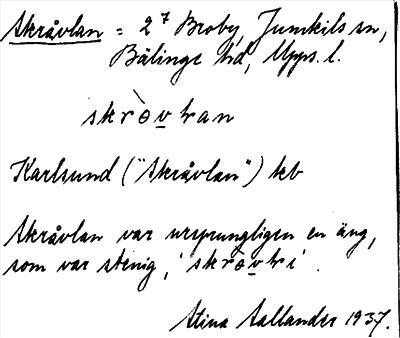 Skråvlan = 2⁷ Broby, Jumkils sn,
Bälinge hd, Upps. l.
skròv̲han
Karlsund ("Skråvlan") tb
Skråvlan var ursprungligen en äng,
som var stenig, i skròv̲hi.
Stina Sallander 1937.